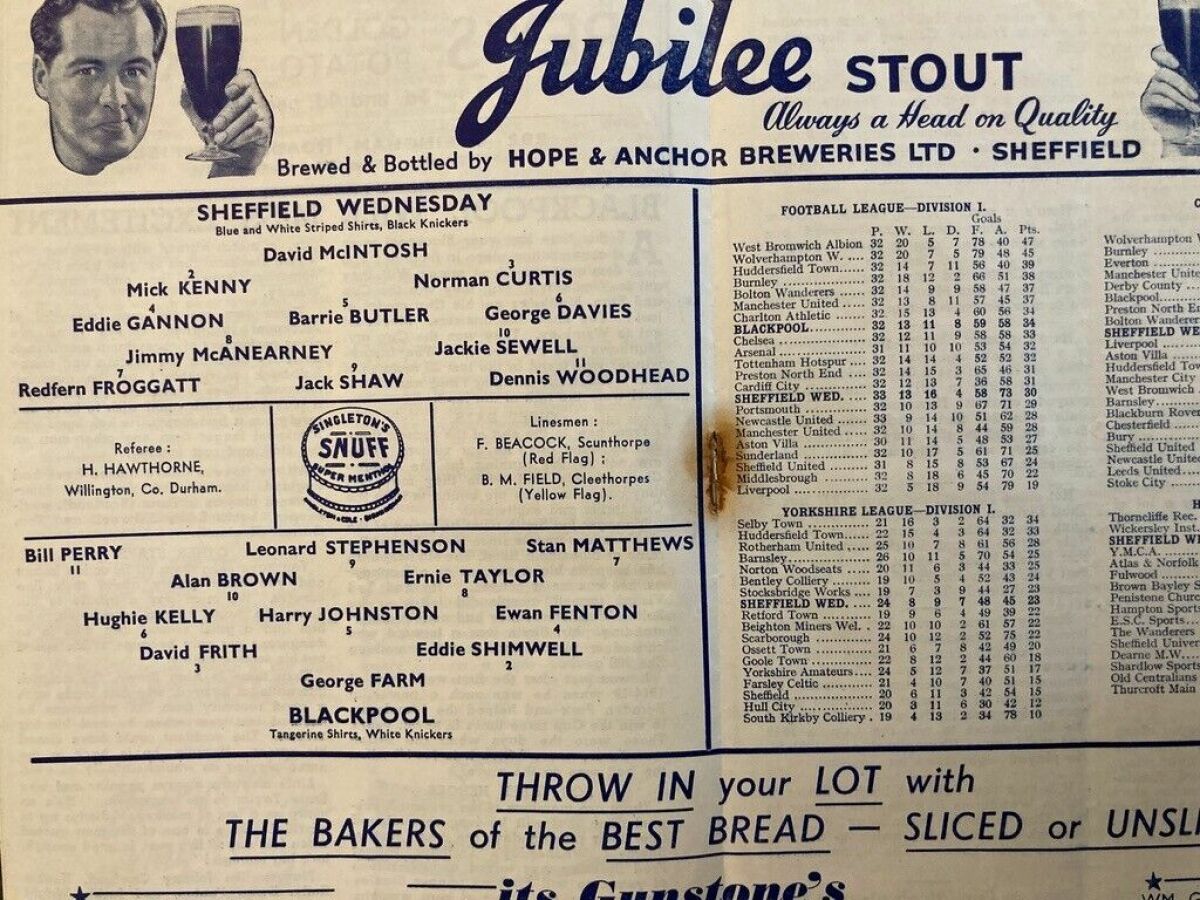 Jubilee STOUT
Always a Head on Quality
Brewed & Bottled by HOPE & ANCHOR BREWERIES LTD · SHEFFIELD
SHEFFIELD WEDNESDAY
Blue and White Striped Shirts, Black Knickers
David McINTOSH
2 3
Mick KENNY Norman CURTIS
4 5 6
Eddie GANNON Barrie BUTLER George DAVIES
8 10
Jimmy McANEARNEY Jackie SEWELL
7 9 11
Redfern FROGGATT Jack SHAW Dennis WOODHEAD
Referee :
H. HAWTHORNE,
Willington, Co. Durham.
SINGLETON'S
SNUFF
SUPER MENTHOL
Linesmen :
F. BEACOCK, Scunthorpe
(Red Flag) ;
B. M. FIELD, Cleethorpes
(Yellow Flag).
Bill PERRY Leonard STEPHENSON Stan MATTHEWS
11 9 7
Alan BROWN Ernie TAYLOR
10 8
Hughie KELLY Harry JOHNSTON Ewan FENTON
6 5 4
David FRITH Eddie SHIMWELL
3 2
George FARM
BLACKPOOL
Tangerine Shirts, White Knickers
FOOTBALL LEAGUE—DIVISION I.
Goals
P. W. L. D. F. A. Pts.
West Bromwich Albion 32 20 5 7 78 40 47
Wolverhampton W. .... 32 20 7 5 79 48 45
Huddersfield Town...... 32 14 7 11 56 40 39
Burnley .................. 32 18 12 2 66 51 38
Bolton Wanderers ...... 32 14 9 9 58 47 37
Manchester United ..... 32 13 8 11 57 45 37
Charlton Athletic ...... 32 15 13 4 60 56 34
BLACKPOOL............ 32 13 11 8 59 58 34
Chelsea .................. 32 12 11 9 58 58 33
Arsenal .................. 31 11 10 10 53 54 32
Tottenham Hotspur ... 32 14 14 4 52 52 32
Preston North End .... 32 14 15 3 65 46 31
Cardiff City ............ 32 12 13 7 36 58 31
SHEFFIELD WED. .... 33 13 16 4 58 73 30
Portsmouth ............. 32 10 13 9 67 71 29
Newcastle United ...... 33 9 14 10 51 62 28
Manchester United ..... 32 10 14 8 44 59 28
Aston Villa .............. 30 11 14 5 48 53 27
Sunderland .............. 32 10 17 5 61 71 25
Sheffield United ........ 31 8 15 8 53 67 24
Middlesbrough ......... 32 8 18 6 45 70 22
Liverpool ................ 32 5 18 9 54 79 19
YORKSHIRE LEAGUE—DIVISION I.
Selby Town .............. 21 16 3 2 64 32 34
Huddersfield Town...... 22 15 4 3 64 32 33
Rotherham United ..... 25 10 7 8 61 56 28
Barnsley.................. 26 10 11 5 70 54 25
Norton Woodseats .... 20 11 6 3 44 33 25
Bentley Colliery ........ 19 10 5 4 52 43 24
Stocksbridge Works ... 19 7 3 9 44 27 23
SHEFFIELD WED. .... 24 8 9 7 48 45 23
Retford Town ........... 19 9 6 4 49 39 22
Beighton Miners Wel. . 22 10 10 2 61 57 22
Scarborough ............. 24 10 12 2 52 75 22
Ossett Town ............. 21 6 7 8 42 49 20
Goole Town .............. 22 8 12 2 44 60 18
Yorkshire Amateurs.... 24 5 12 7 37 51 17
Farsley Celtic ........... 21 4 10 7 40 51 15
Sheffield .................. 20 6 11 3 42 54 15
Hull City ................. 20 3 11 6 30 42 12
South Kirkby Colliery . 19 4 13 2 34 78 10
Wolverhampton
Burnley ....
Everton ....
Manchester Unit
Derby County ...
Blackpool.....
Preston North E
Bolton Wanderer
SHEFFIELD WE
Liverpool ....
Aston Villa ...
Huddersfield Tow
Manchester City
West Bromwich
Barnsley.....
Blackburn Rove
Chesterfield ...
Bury ....
Sheffield United
Newcastle Unite
Leeds United....
Stoke City ....
Thorncliffe Rec.
Wickersley Inst.
SHEFFIELD WE
Y.M.C.A. ....
Atlas & Norfolk
Fulwood ....
Brown Bayley S
Penistone Churc
Hampton Sports
E.S.C. Sports....
The Wanderers
Sheffield Univer
Dearne M.W....
Shardlow Sports
Old Centralians
Thurcroft Main
THROW IN your LOT with
THE BAKERS of the BEST BREAD — SLICED or UNSLI
its Gunstone's